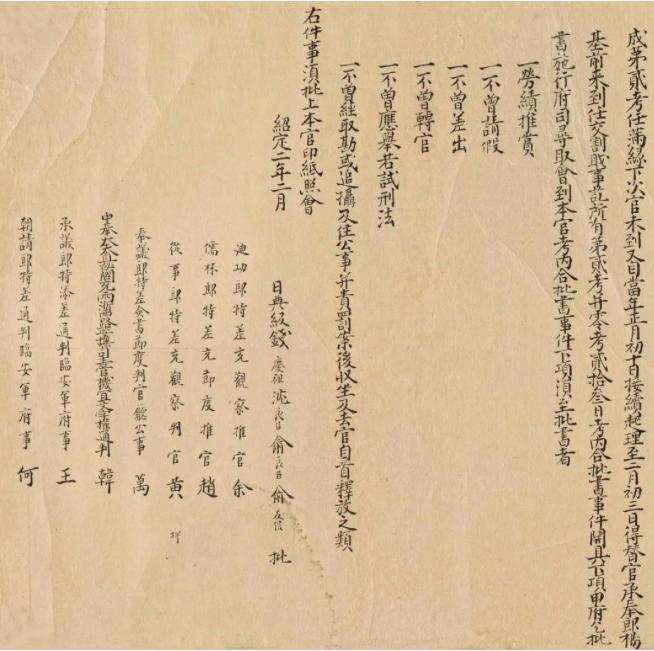 成第貳考任滿緣下次官未到又自當年正月初十日接續起理至二月初三日得替官承奉郎楊
基前来到任交割職事訖所有第貳考并零考貳拾叁日考内合批書事件開具下項申府乞批
書施行府司尋取會到本官考内合批書事件下項須至批書者
一勞績推賞
一不曾請假
一不曾差出
一不曾轉官
一不曾應舉若試刑法
一不曾經取勘或追攝及住公事并責罰案後收坐及去官自首釋放之類
右件事須批上本官印紙照會
紹定二年二月 日典級錢 慶祖 沈 俞 俞 批
迪功郎特差充觀察推官余
儒林郎特差充節度推官趙
從事郎特差充觀察判官黄 押
奉議郎特差僉書節度判官廳公事 萬
中奉大夫直 兩浙路安撫司主管機宜文字 通判 韓
承議郎特添差通判臨安軍府事 王
朝請郎特差通判臨安軍府事 何